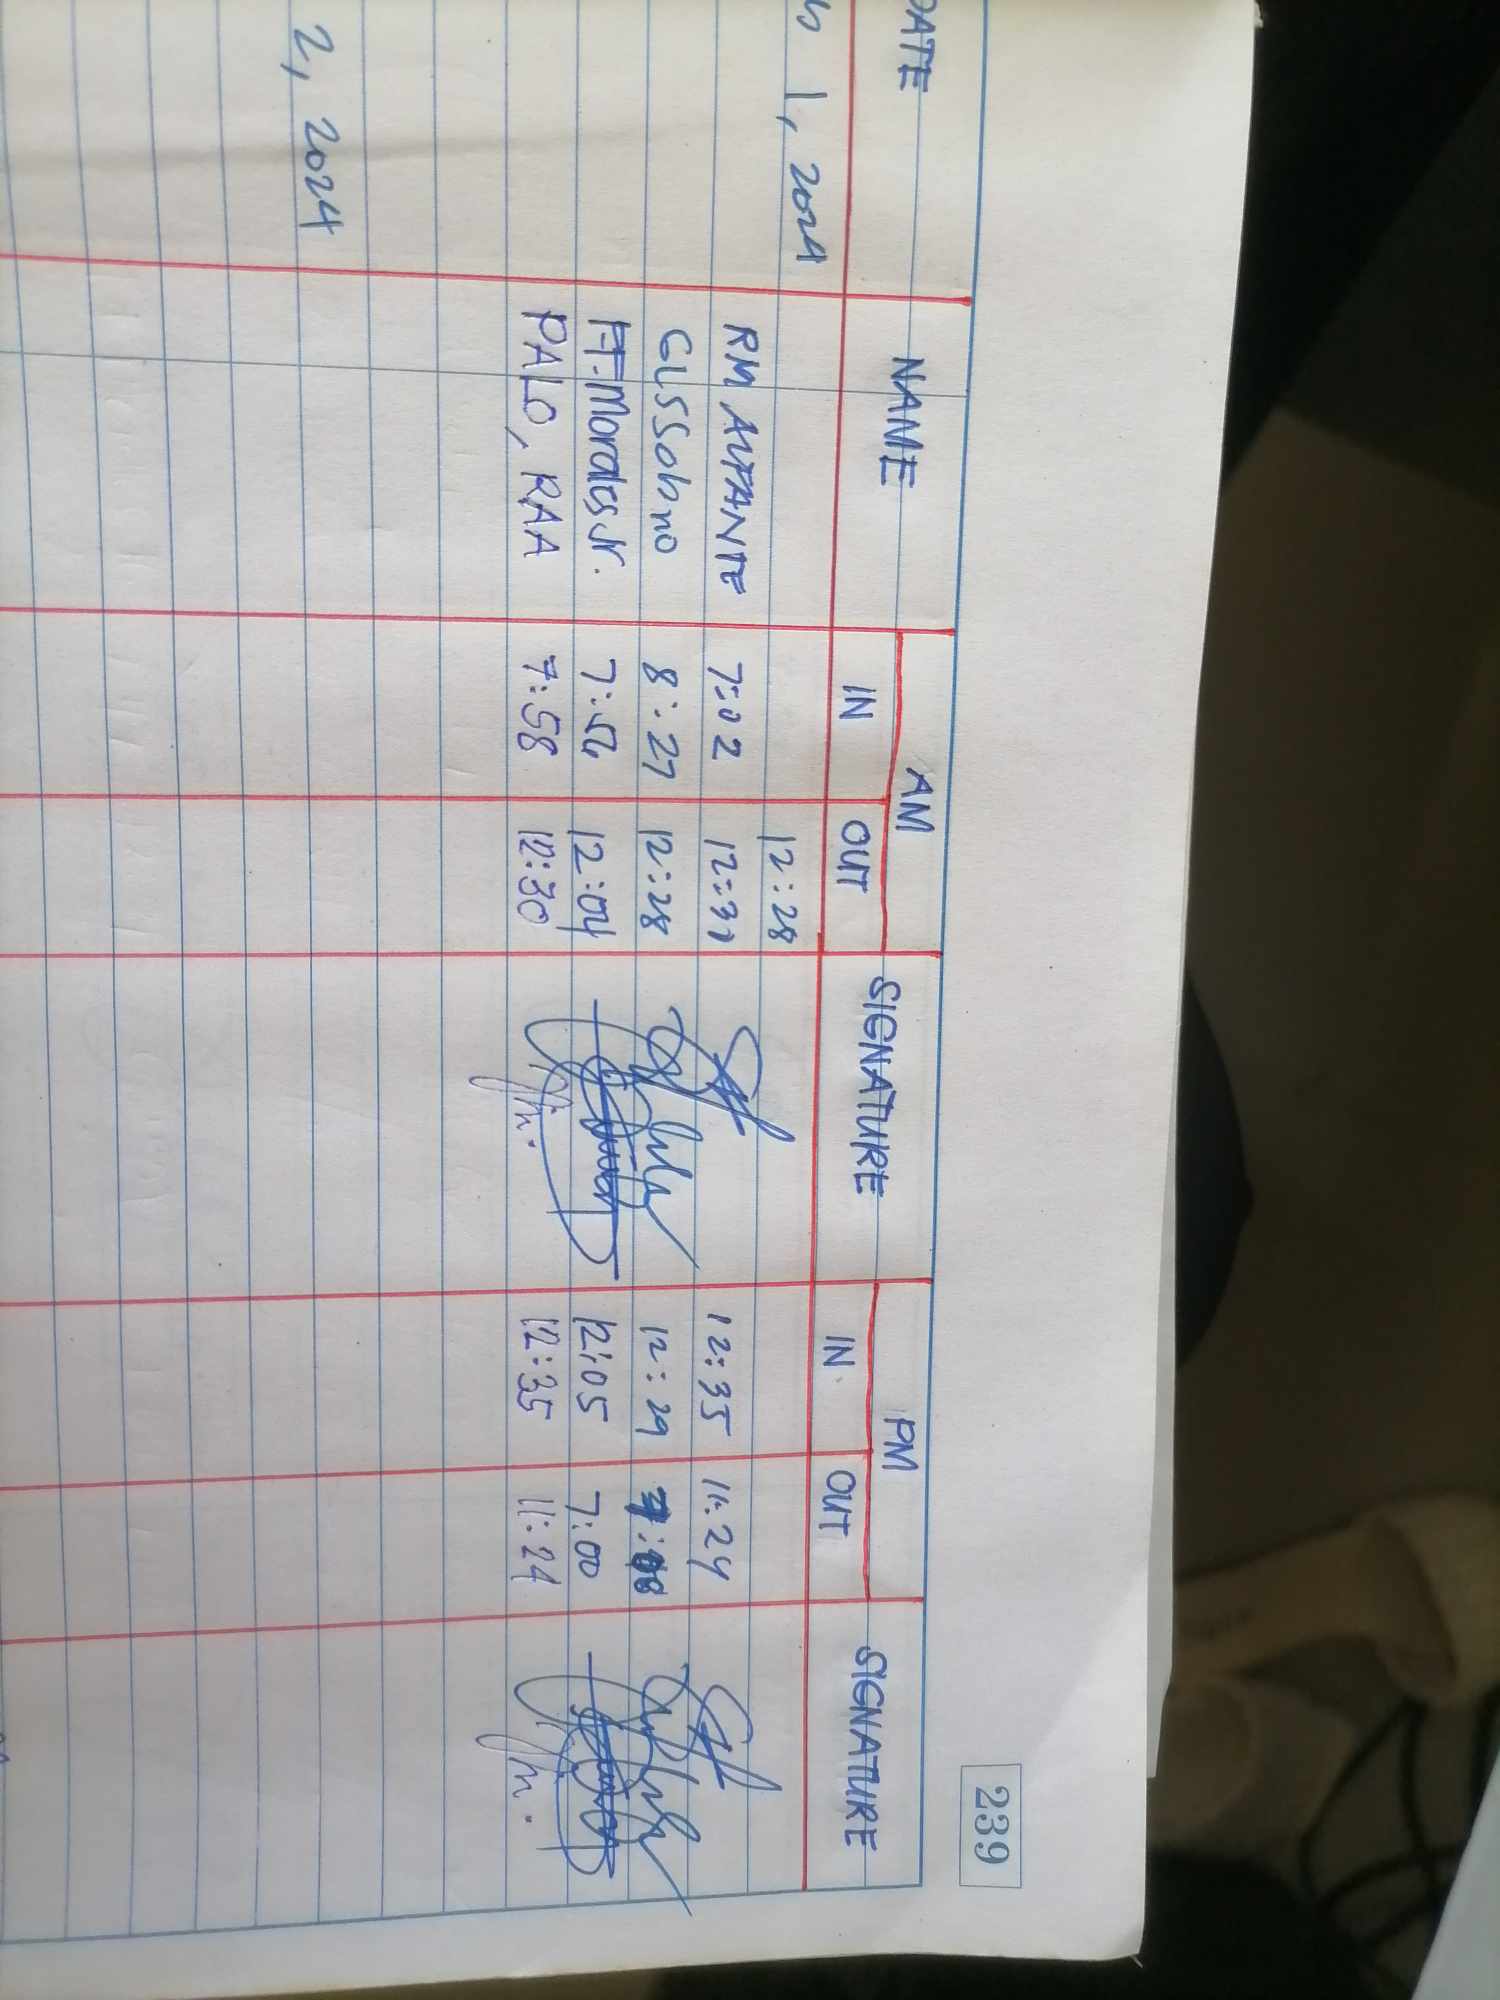 239
DATE NAME AM SIGNATURE PM SIGNATURE
IN OUT IN OUT
1, 2024 12:28
RM ALFANTE 7:02 12:30 12:35 11:24
8:27 12:28 12:29
FT. Morales Jr. 7:54 12:04 12:05 7:00
PALO, RAA 7:58 12:30 12:35 11:24
2, 2024